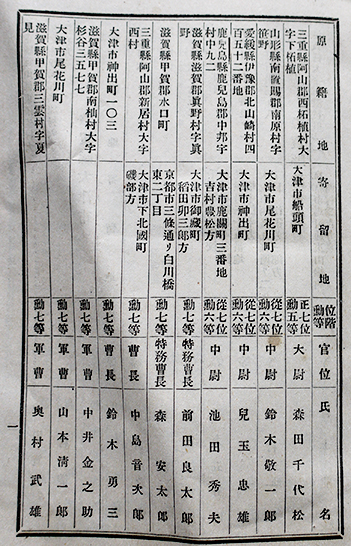 原籍地 寄留地 位階勳等 官位 氏名
三重縣阿山郡西柘植村大字下柘植 大津市船頭町 正七位勳五等 大尉 森田千代松
山形縣南置賜郡南原村字笹野 大津市尾花川町 從七位勳六等 中尉 鈴木敬一郎
愛媛縣伊豫郡北山崎村四百五十二番地 大津市神出町 從七位勳六等 中尉 兒玉忠雄
鹿兒島縣鹿兒島郡中郡宇村中九二 大津市鹿關町三番地吉村豊松方 從七位勳六等 中尉 池田秀夫
滋賀縣滋賀郡眞野村字眞野 大津市御藏町稻田卯三郎方 勳七等 特務曹長 前田良太郎
滋賀縣甲賀郡水口町 京都市三條通リ白川橋東二丁目 勳七等 特務曹長 森安太郎
三重縣阿山郡新居村大字西村 大津市下北國町磯部方 勳七等 曹長 中島音次郎
大津市神出町一〇三 勳七等 曹長 鈴木勇三
滋賀縣甲賀郡南杣村大字杉谷三五七七 勳七等 軍曹 中井金之助
大津市尾花川町 勳七等 軍曹 山本清一郎
滋賀縣甲賀郡三雲村字夏見 勳七等 軍曹 奥村武雄
一